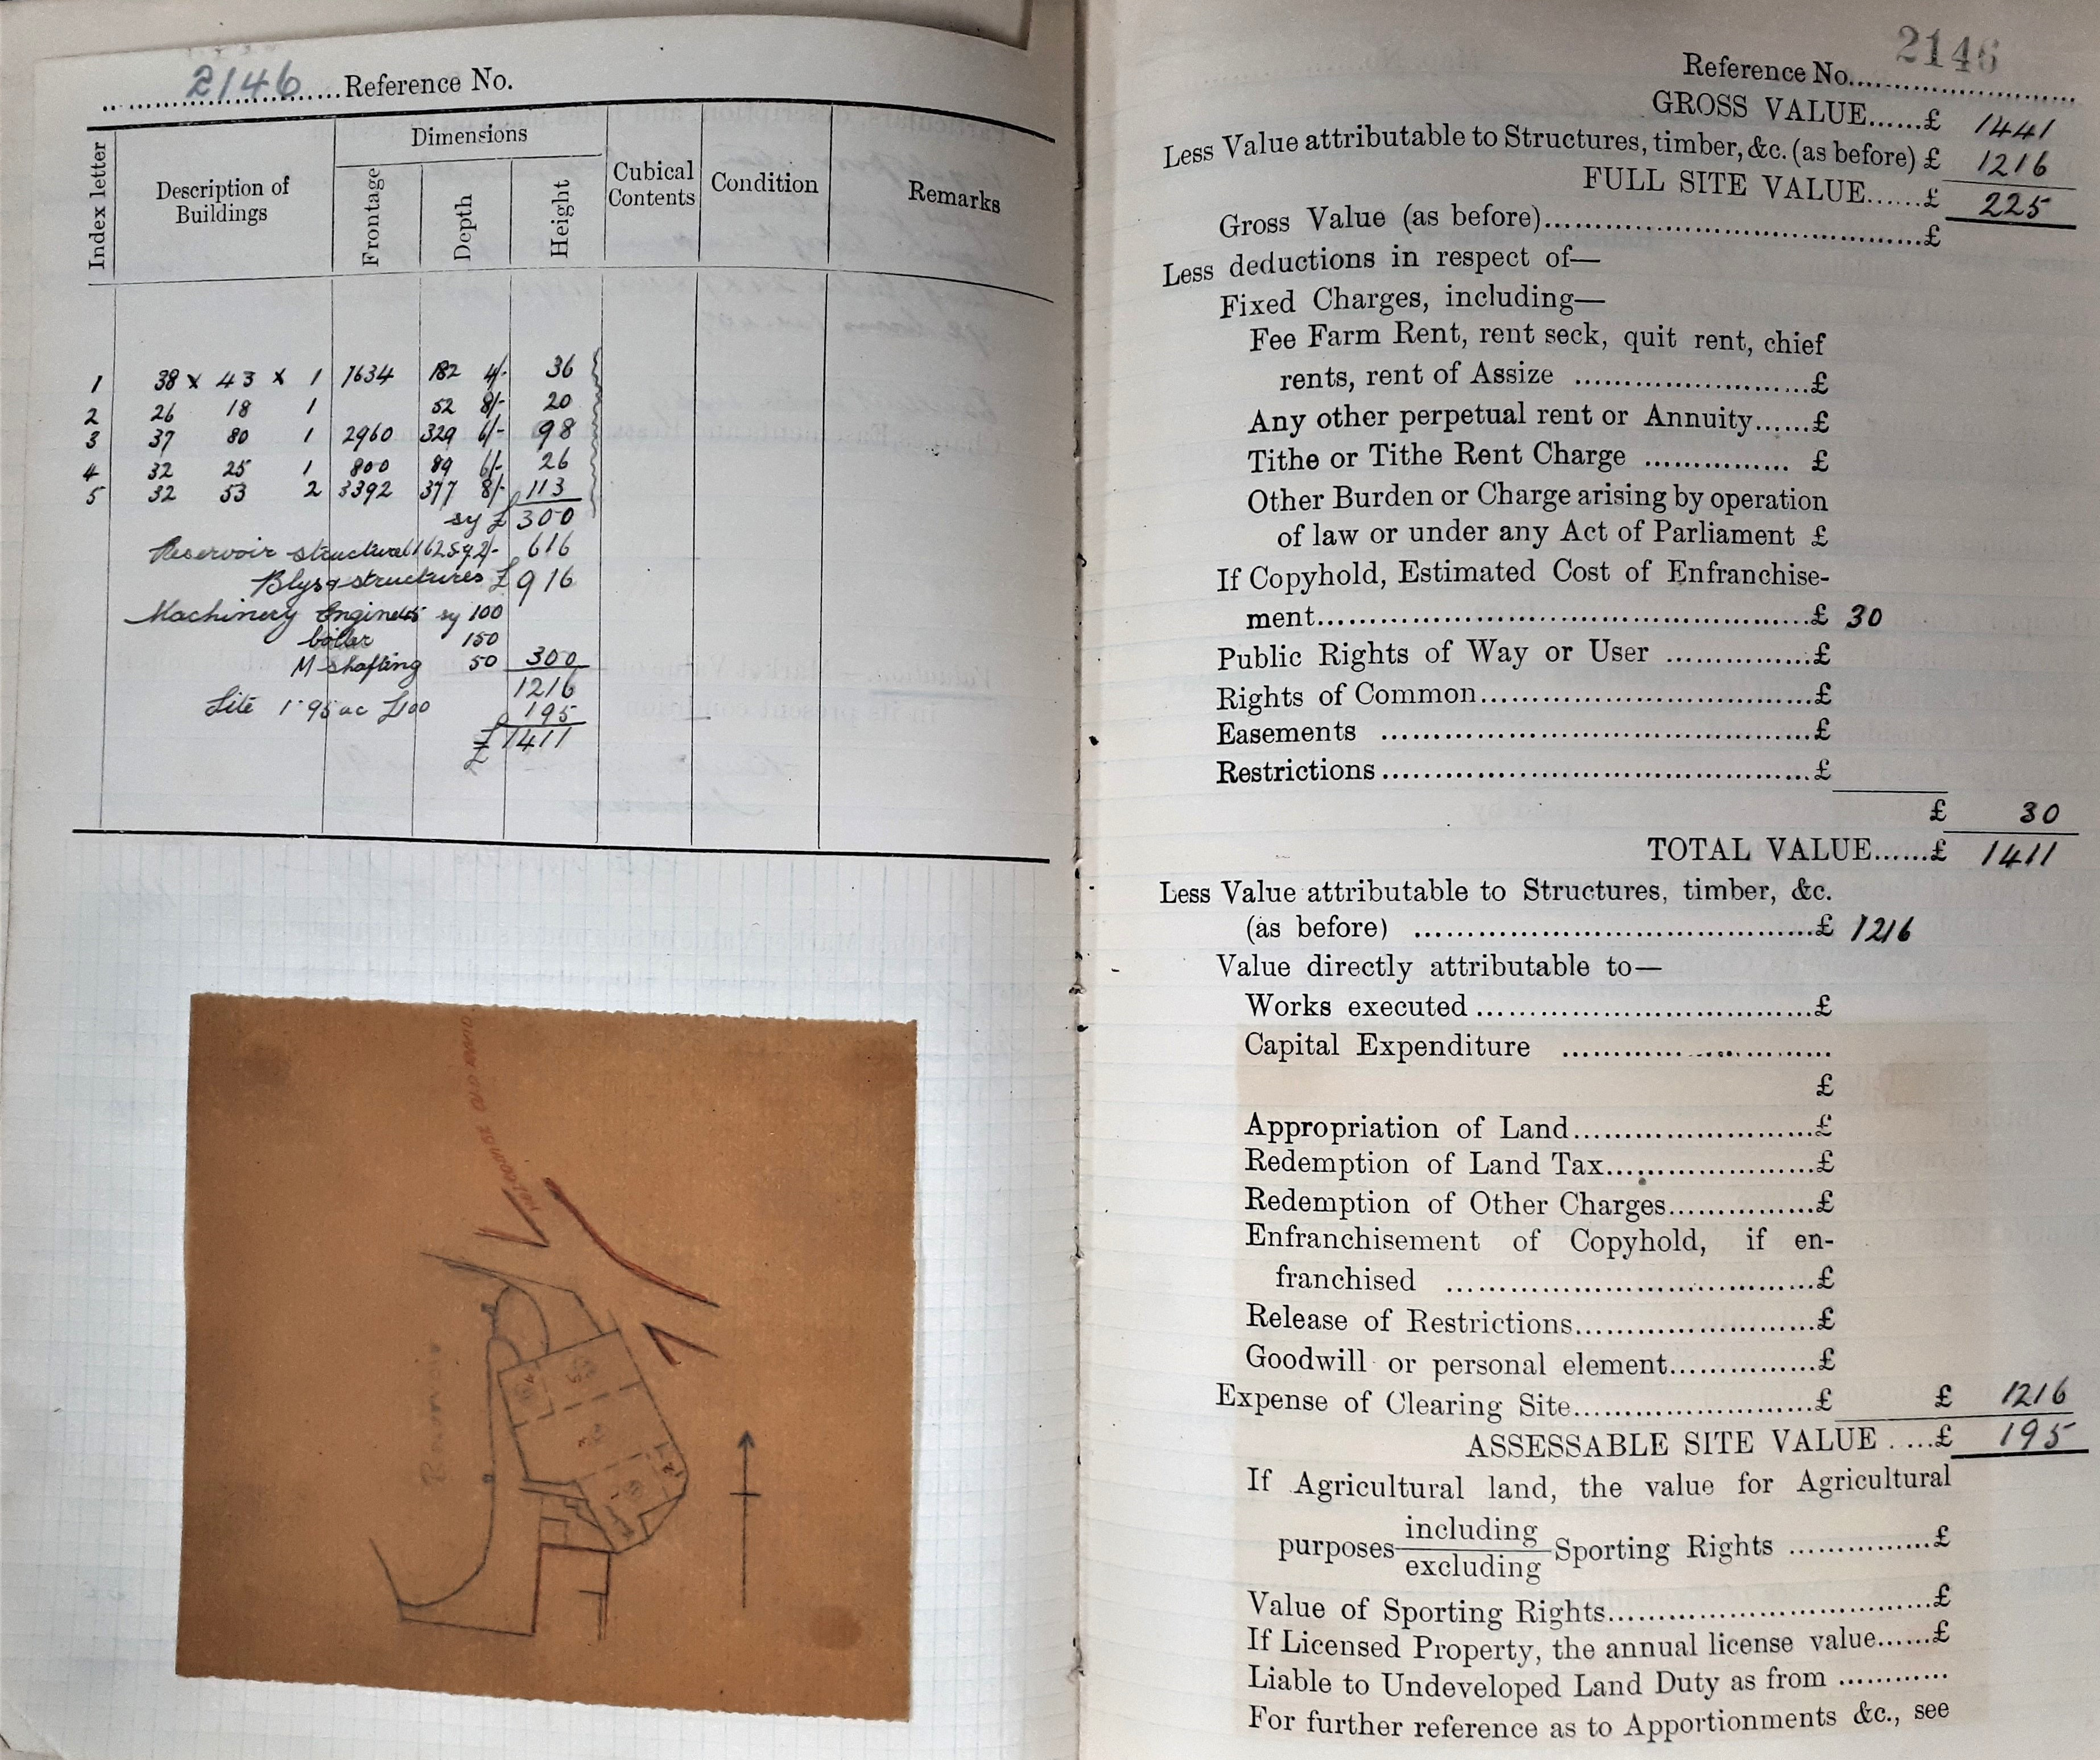 2146 Reference No.
Index letter
Description of Buildings
Dimensions
Frontage
Depth
Height
Cubical Contents
Condition
Remarks
1 38 x 43 x 1 1634 182 4/- 36
2 26 18 1 52 8/- 20
3 37 80 1 2960 329 6/- 98
4 32 25 1 800 89 6/- 26
5 32 53 2 3392 377 8/- 113
sy £ 300
Reservoir structural 616
Blygs structures £ 916
Machinery Engine sy 100
boiler 150
M shafting 50 300
1216
Site 1.95 ac £100 195
£ 1411
HOLCOMBE OLD ROAD
Reservoir
5
4
3
2
1
2146
Reference No.
GROSS VALUE......£ 1441
Less Value attributable to Structures, timber, &c. (as before) £ 1216
FULL SITE VALUE......£ 225
Gross Value (as before)......£
Less deductions in respect of—
Fixed Charges, including—
Fee Farm Rent, rent seck, quit rent, chief
rents, rent of Assize ......£
Any other perpetual rent or Annuity......£
Tithe or Tithe Rent Charge ...... £
Other Burden or Charge arising by operation
of law or under any Act of Parliament £
If Copyhold, Estimated Cost of Enfranchise-
ment......£ 30
Public Rights of Way or User ......£
Rights of Common......£
Easements ......£
Restrictions......£
£ 30
TOTAL VALUE......£ 1411
Less Value attributable to Structures, timber, &c.
(as before) ......£ 1216
Value directly attributable to—
Works executed ......£
Capital Expenditure ......
£
Appropriation of Land......£
Redemption of Land Tax......£
Redemption of Other Charges......£
Enfranchisement of Copyhold, if en-
franchised ......£
Release of Restrictions......£
Goodwill or personal element......£
Expense of Clearing Site......£ £ 1216
ASSESSABLE SITE VALUE .....£ 195
If Agricultural land, the value for Agricultural
purposes including
excluding Sporting Rights ......£
Value of Sporting Rights......£
If Licensed Property, the annual license value......£
Liable to Undeveloped Land Duty as from ......
For further reference as to Apportionments &c., see